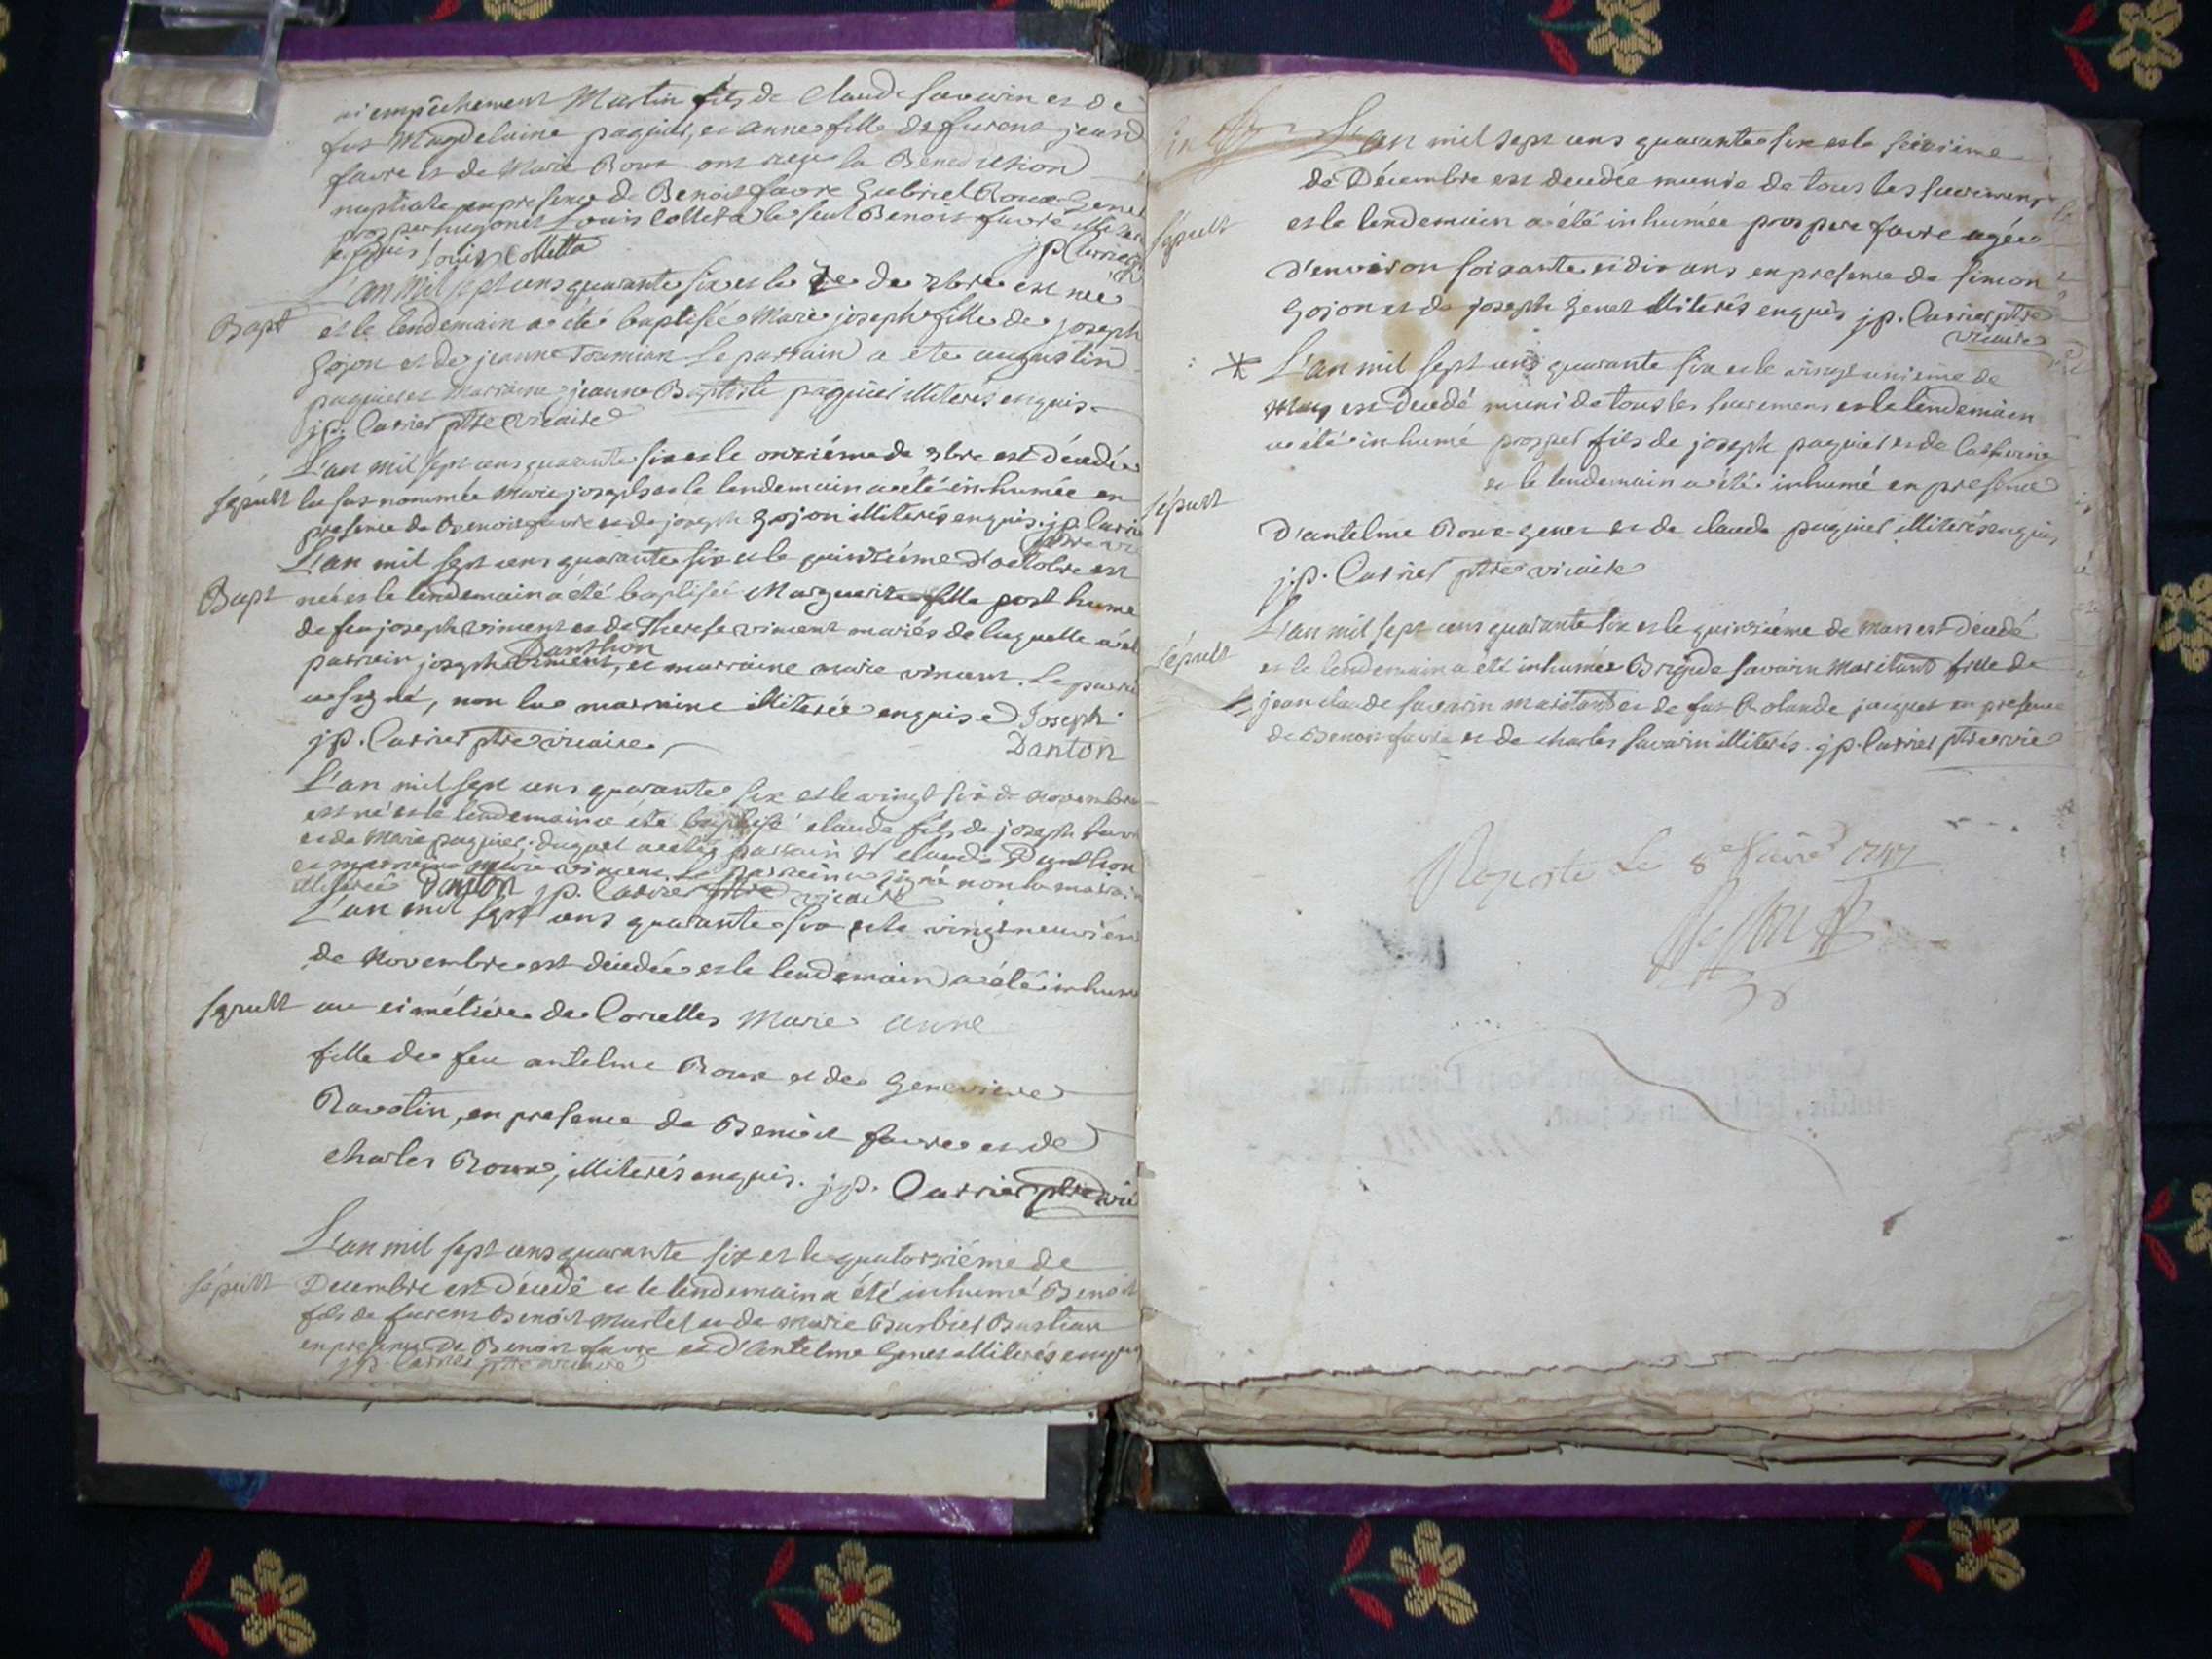 empêchement Martin fils de Claude Savarin et de
fut Magdelaine paquier, et anne fille defurent jean
favre et de Marie Roux ont reçu la Benediction
nuptiale en presence de Benoit favre Gabriel Roux Genet
prosper hugonet Louis Colletta le seul Benoit favre
enquis Louis Colletta
jp Carrier
L'an Mil sept cens quarante six et le de 7bre est née
Bapt
et le lendemain a été baptisée Marie joseph fille de joseph
Gojon et de jeanne le parrain a ete augustin
paquier et Marraine jeanne Baptiste paquier illiterés enquis
jp. Carrier ptre vicaire
L'an mil sept cens quarante six et le onziéme de 7bre est décedée
sépult la sus nommée Marie joseph et le lendemain a été inhumée en
presence de Benoit favre et de joseph Gojon illiterés enquis. jp. Carrier
L'an mil sept cens quarante six et le quinziéme d'octobre est
Bapt née et le lendemain a été baptisée Marguerite fille posthume
de feu joseph vincent et de Therese vincent mariés de laquelle a été
Danthon
parrain joseph vincent, et marraine marie vincent. Le parrain
a signé, non la marraine illiterée enquise. Joseph
jp. Carrier ptre vicaire
Danton
L'an mil sept cens quarante six et le vingt six de novembre
est né et le lendemain a été baptisé claude fils de joseph favre
et de Marie paquier; duquel a été parrain claude Danthon
et marraine marie vincent. Le parrain a signé non la marraine
illiterée Danton jp. Carrier ptre vicaire
L'an mil sept cens quarante six et le vingt neuviém
de Novembre est décedée et le lendemain a été inhumée
sepult au cimétiére de Corcelles Marie anne
fille de feu antelme Roux et de Genevieve
Ravotin, en presence de Benoit favre et de
charles Roux, illiterés enquis. j.p. Carrier ptre vic
L'an mil sept cens quarante six et le quatorziéme de
sépult Decembre est décedé et le lendemain a été inhumé Benoit
fils de furent Benoit Martel et de marie Barbier Bastian
en presence de Benoit favre et d'Antelme Genet illiterés enquis
jp. Carrier ptre vicaire
L'an mil sept cens quarante six et le seiziéme
de Décembre est decedée munie de tous les sacremens
sépult
et le lendemain a été inhumée prospere favre agée
d'environ soixante et dix ans en presence de simeon
Gojon et de joseph Genet illiterés enquis jp. Carrier ptre
vicaire
* L'an mil sept cens quarante six et le vingt uniéme de
May est decedé muni de tous les sacremens et le lendemain
a été inhumé prosper fils de joseph paquier et de Catherine
et le lendemain a été inhumé en presence
sépult
D'antelme Roux-genet et de claude paquier illiterés enquis
j.p. Carrier ptre vicaire
L'an mil sept cens quarante six et le quinziéme de mars est décedé
sépult
et le lendemain a été inhumée Brigide savarin Maritand fille de
jean claude savarin maritand et de fut Rolande jacquet en presence
de Benoit favre et de charles savarin illiterés. jp. Carrier ptre vic
Raporté le 8e 1747